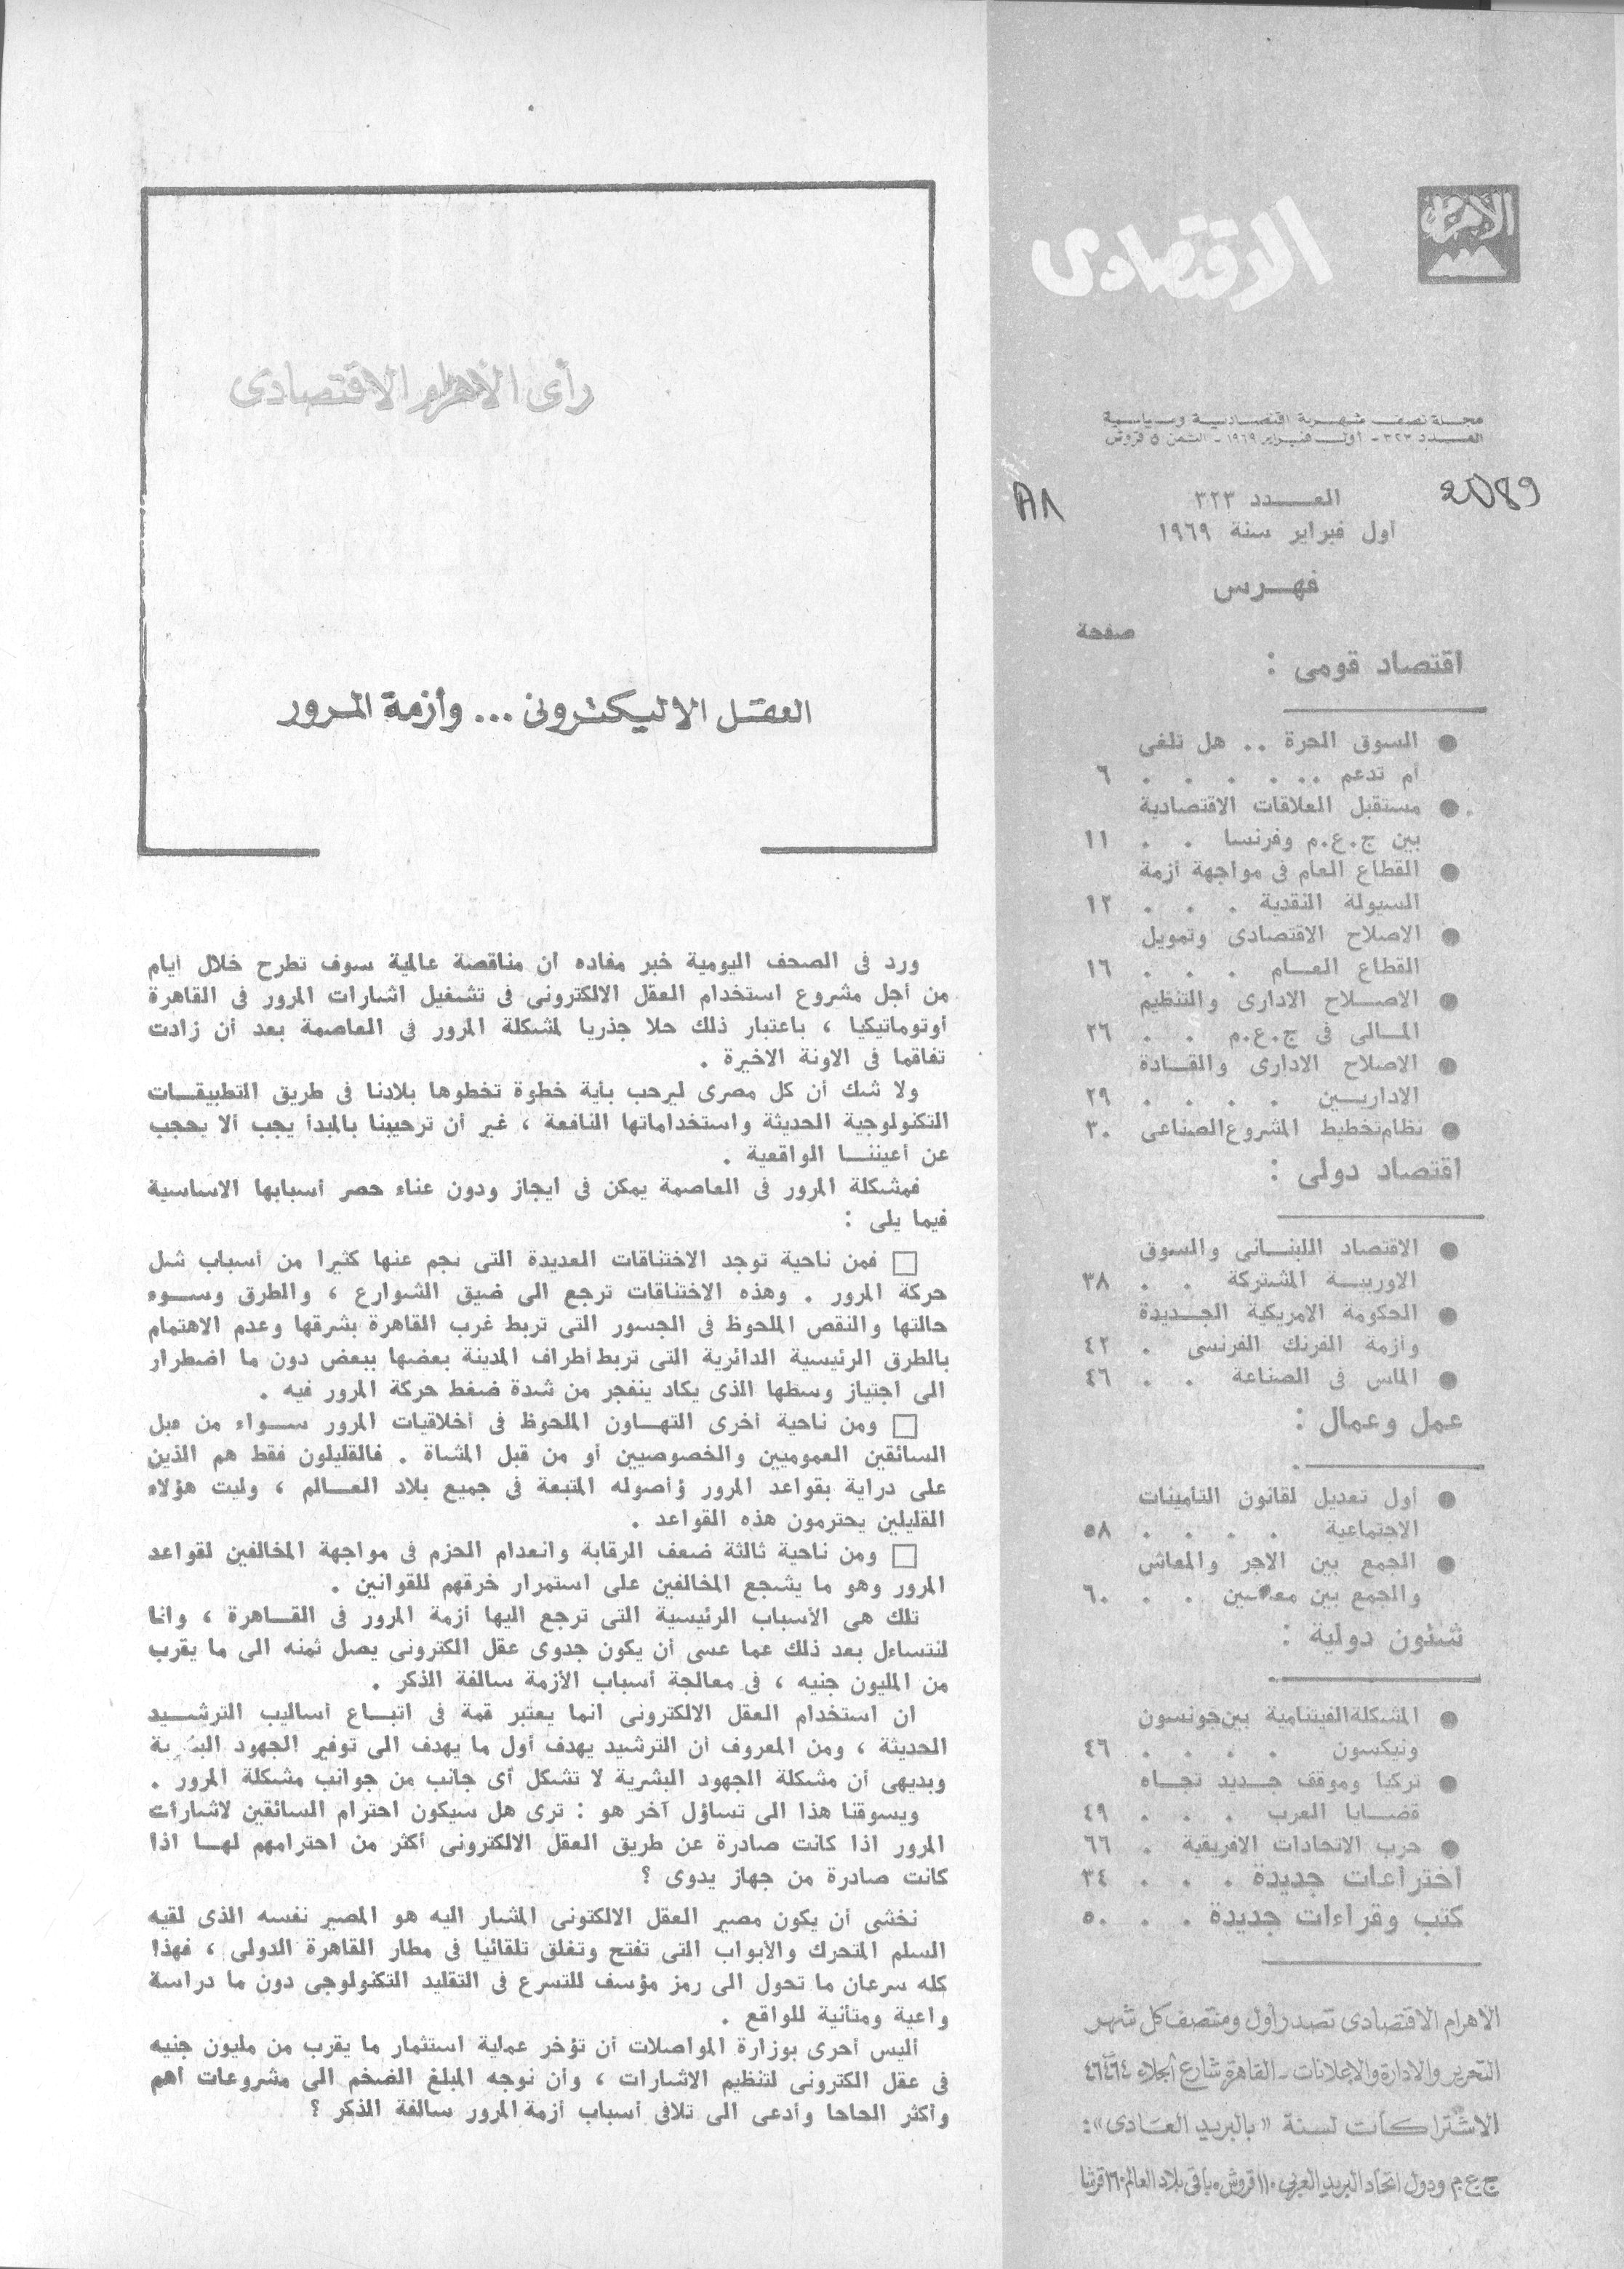 الاهرام
الاقتصادى
مجلة نصف شهرية اقتصادية وسياسية
العدد ٣٢٣ - أول فبراير ١٩٦٩ - الثمن ٥ قروش
2089
العدد ٣٢٣
أول فبراير سنة ١٩٦٩
فهرس
صفحة
اقتصاد قومى :
● السوق الحرة .. هل تلغى
أم تدعم .. . . . . ٦
● مستقبل العلاقات الاقتصادية
بين ج.ع.م وفرنسا . . ١١
● القطاع العام فى مواجهة أزمة
السيولة النقدية . . . ١٢
● الاصلاح الاقتصادى وتمويل
القطاع العام . . . ١٦
● الاصلاح الادارى والتنظيم
المالى فى ج.ع.م . . ٢٦
● الاصلاح الادارى والقادة
الاداريين . . . . ٢٩
● نظام تخطيط المشروع الصناعى ٣٠
اقتصاد دولى :
● الاقتصاد اللبنانى والسوق
الاوربية المشتركة . . ٣٨
● الحكومة الامريكية الجديدة
وأزمة الفرنك الفرنسى . ٤٢
● الماس فى الصناعة . . ٤٦
عمل وعمال :
● أول تعديل لقانون التأمينات
الاجتماعية . . . . ٥٨
● الجمع بين الاجر والمعاش
والجمع بين معاشين . . ٦٠
شئون دولية :
● المشكلة الفيتنامية بين جونسون
ونيكسون . . . . ٤٦
● تركيا وموقف جديد تجاه
قضايا العرب . . . ٤٩
● حرب الاتحادات الافريقية . ٦٦
اختراعات جديدة . . . ٣٤
كتب وقراءات جديدة . . ٥٠
الاهرام الاقتصادى تصدر أول ومنتصف كل شهر
التحرير والادارة والاعلانات - القاهرة شارع الجلاء ت ٤٦٤٦٤
الاشتراكات لسنة « بالبريد العادى » :
ج.ع.م ودول اتحاد البريد العربى ١١٠ قروش، باقى بلاد العالم ١٦٠ قرشا
رأى الأهرام الاقتصادى
العقل الاليكترونى ... وأزمة المرور
ورد فى الصحف اليومية خبر مفاده أن مناقصة عالمية سوف تطرح خلال أيام
من أجل مشروع استخدام العقل الالكترونى فى تشغيل اشارات المرور فى القاهرة
أوتوماتيكيا ، باعتبار ذلك حلا جذريا لمشكلة المرور فى العاصمة بعد أن زادت
تفاقما فى الاونة الاخيرة .
ولا شك أن كل مصرى ليرحب بأية خطوة تخطوها بلادنا فى طريق التطبيقات
التكنولوجية الحديثة واستخداماتها النافعة ، غير أن ترحيبنا بالمبدأ يجب ألا يحجب
عن أعيننا الواقعية .
فمشكلة المرور فى العاصمة يمكن فى ايجاز ودون عناء حصر أسبابها الاساسية
فيما يلى :
□ فمن ناحية توجد الاختناقات العديدة التى نجم عنها كثيرا من أسباب شل
حركة المرور . وهذه الاختناقات ترجع الى ضيق الشوارع ، والطرق وسوء
حالتها والنقص الملحوظ فى الجسور التى تربط غرب القاهرة بشرقها وعدم الاهتمام
بالطرق الرئيسية الدائرية التى تربط أطراف المدينة بعضها ببعض دون ما اضطرار
الى اجتياز وسطها الذى يكاد ينفجر من شدة ضغط حركة المرور فيه .
□ ومن ناحية أخرى التهاون الملحوظ فى أخلاقيات المرور سواء من قبل
السائقين العموميين والخصوصيين أو من قبل المشاة . فالقليلون فقط هم الذين
على دراية بقواعد المرور وأصوله المتبعة فى جميع بلاد العالم ، وليت هؤلاء
القليلين يحترمون هذه القواعد .
□ ومن ناحية ثالثة ضعف الرقابة وانعدام الحزم فى مواجهة المخالفين لقواعد
المرور وهو ما يشجع المخالفين على استمرار خرقهم للقوانين .
تلك هى الأسباب الرئيسية التى ترجع اليها أزمة المرور فى القاهرة ، وانا
لنتساءل بعد ذلك عما عسى أن يكون جدوى عقل الكترونى يصل ثمنه الى ما يقرب
من المليون جنيه ، فى معالجة أسباب الأزمة سالفة الذكر .
ان استخدام العقل الالكترونى انما يعتبر قمة فى اتباع أساليب الترشيد
الحديثة ، ومن المعروف أن الترشيد يهدف أول ما يهدف الى توفير الجهود البشرية
وبديهى أن مشكلة الجهود البشرية لا تشكل أى جانب من جوانب مشكلة المرور .
ويسوقنا هذا الى تساؤل آخر هو : ترى هل سيكون احترام السائقين لاشارات
المرور اذا كانت صادرة عن طريق العقل الالكترونى أكثر من احترامهم لها اذا
كانت صادرة من جهاز يدوى ؟
نخشى أن يكون مصير العقل الالكتونى المشار اليه هو المصير نفسه الذى لقيه
السلم المتحرك والأبواب التى تفتح وتغلق تلقائيا فى مطار القاهرة الدولى ، فهذا
كله سرعان ما تحول الى رمز مؤسف للتسرع فى التقليد التكنولوجى دون ما دراسة
واعية ومتأنية للواقع .
أليس أحرى بوزارة المواصلات أن تؤخر عملية استثمار ما يقرب من مليون جنيه
فى عقل الكترونى لتنظيم الاشارات ، وأن نوجه المبلغ الضخم الى مشروعات أهم
وأكثر الحاحا وأدعى الى تلافى أسباب أزمة المرور سالفة الذكر ؟